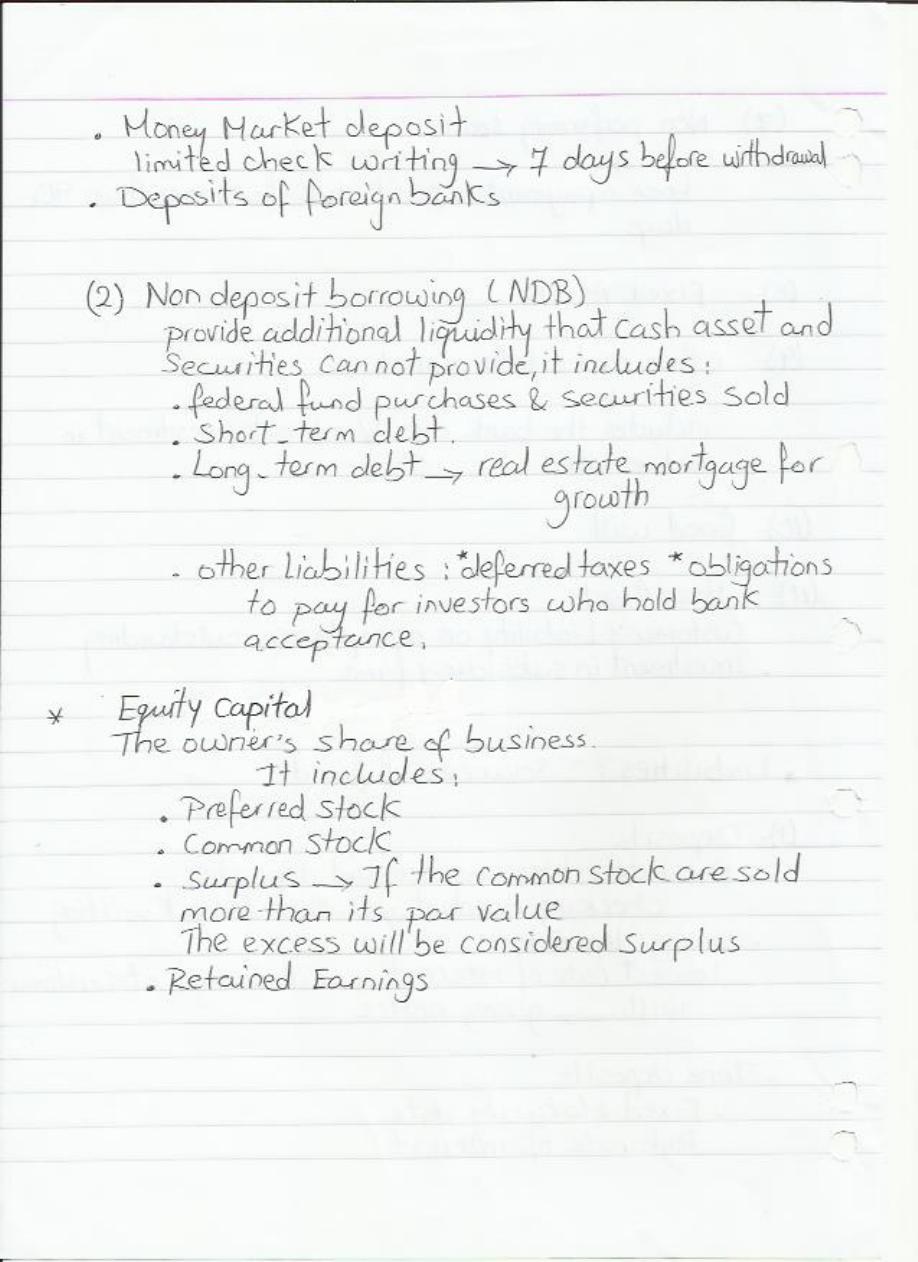 . Money Market deposit
limited check writing → 7 days before withdrawal
. Deposits of foreign banks
(2) Non deposit borrowing (NDB)
provide additional liquidity that cash asset and
Securities cannot provide, it includes:
. federal fund purchases & securities sold
. Short-term debt.
. Long-term debt → real estate mortgage for
growth
. other Liabilities : *deferred taxes *obligations
to pay for investors who hold bank
acceptance.
* Equity Capital
The owner's share of business.
It includes:
. Preferred stock
. Common stock
. Surplus → If the common stock are sold
more than its par value
The excess will be considered surplus
. Retained Earnings